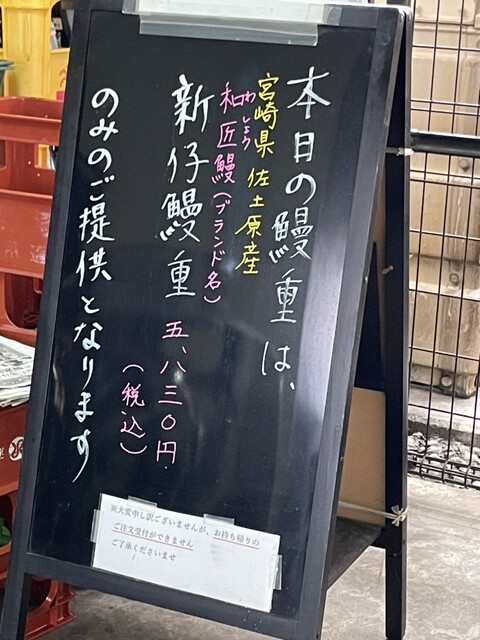 本日の鰻重は、
宮崎県佐土原産
和匠鰻(ブランド名)
わしょう
新仔鰻重 五、八三〇円
(税込)
のみのご提供となります
※大変申し訳ございませんが、お持ち帰りの
ご注文受付ができません
ご了承くださいませ